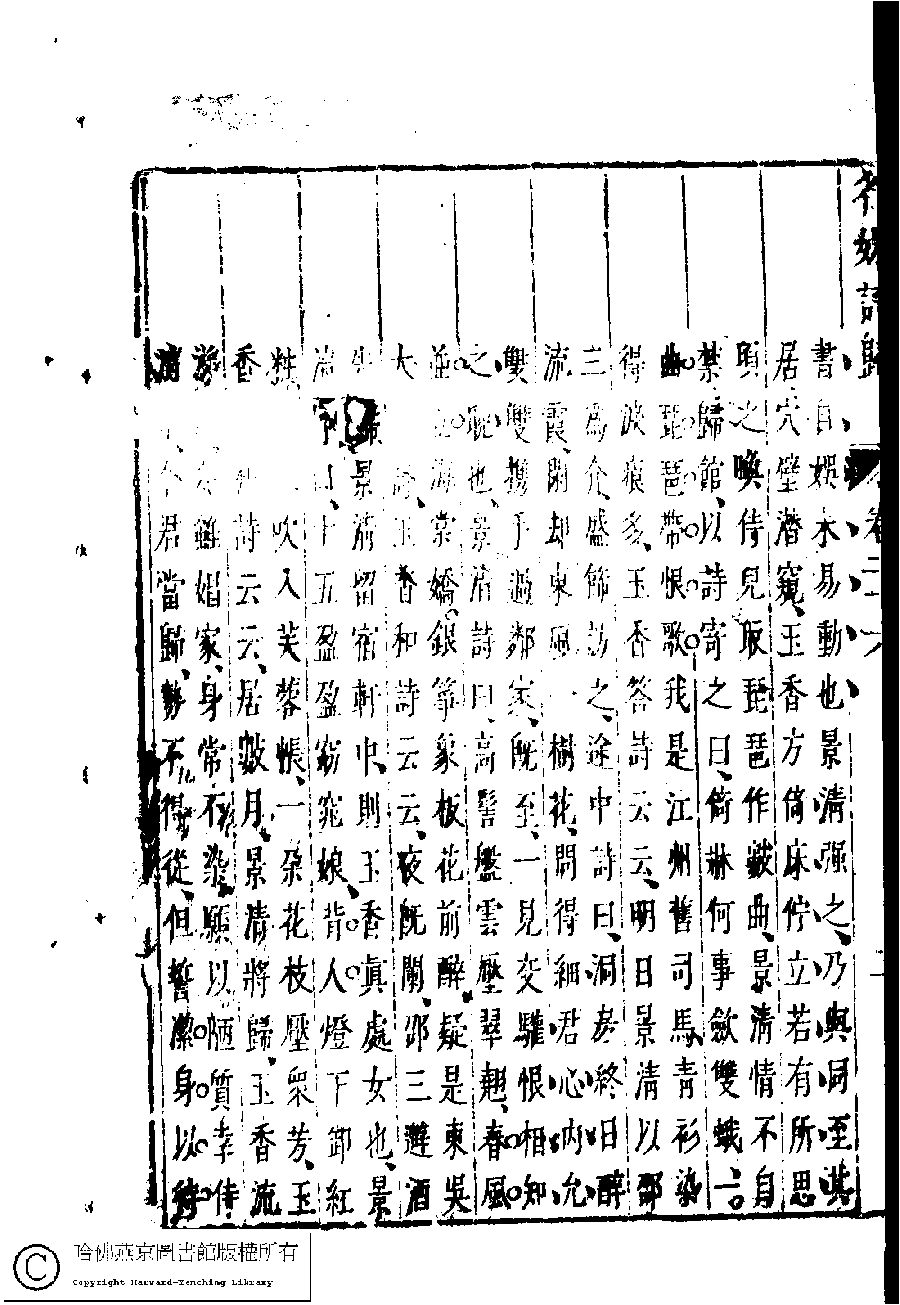 名媛詩歸 卷二十六 二
書自娛未易動也景清强之乃與同至其
居穴壁潛窺玉香方倚床佇立若有所思
頃之喚侍兒取琵琶作皷曲景清情不自
禁歸館以詩寄之曰倚牀何事斂雙蛾一
曲琵琶帶恨歌我是江州舊司馬青衫染
得淚痕多玉香答詩云云明日景清以邵
三為介盛飾訪之途中詩曰洞房終日醉
流霞閑却東風一樹花問得細君心內允
雙雙攜手過鄰家既至一見交驩恨相知
之晚也景清詩曰高髻盤雲壓翠翹春風
並立海棠嬌銀箏象板花前醉疑是東吳
大 玉香和詩云云夜既闌邵三避酒
先歸景清留宿軒中則玉香真處女也景
清 十五盈盈窈窕娘背人燈下卸紅
粧 吹入芙蓉帳一朶花枝壓衆芳玉
香 詩云云居數月景清將歸玉香流
雖娼家身常不染願以陋質幸侍
清 今君當歸勢不得從但誓潔身以待
哈佛燕京圖書館版權所有
Copyright Harvard-Yenching Library